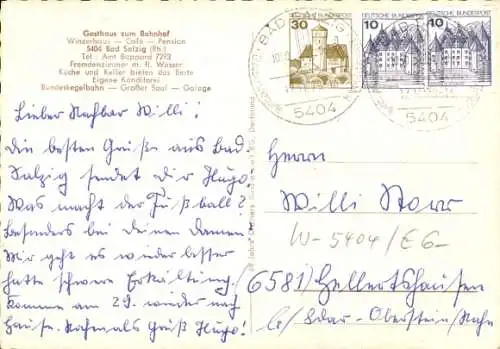 Gasthaus zum Bahnhof
Winzerhaus — Café — Pension
5404 Bad Salzig (Rh.)
Tel.: Amt Boppard 7292
Fremdenzimmer m. fl. Wasser
Küche und Keller bieten das Beste
Eigene Konditorei
Bundeskegelbahn — Großer Saal — Garage
Lieber Nachbar Willi!
Die besten Grüße aus Bad
Salzig sendet Dir Hugo.
Was macht der Fußball?
Besonders bei deinen Damen.
Mir geht es wieder besser
hatte schwere Erkältung.
Komme am 29. wieder nach
Hause. Nochmals Gruß Hugo!
30 DEUTSCHE BUNDESPOST
10 DEUTSCHE BUNDESPOST
10 DEUTSCHE BUNDESPOST
BAD
5404
5404
Herrn
Willi
W-5404/E6-
6581) Hettertshausen
Idar-Oberstein/Nahe